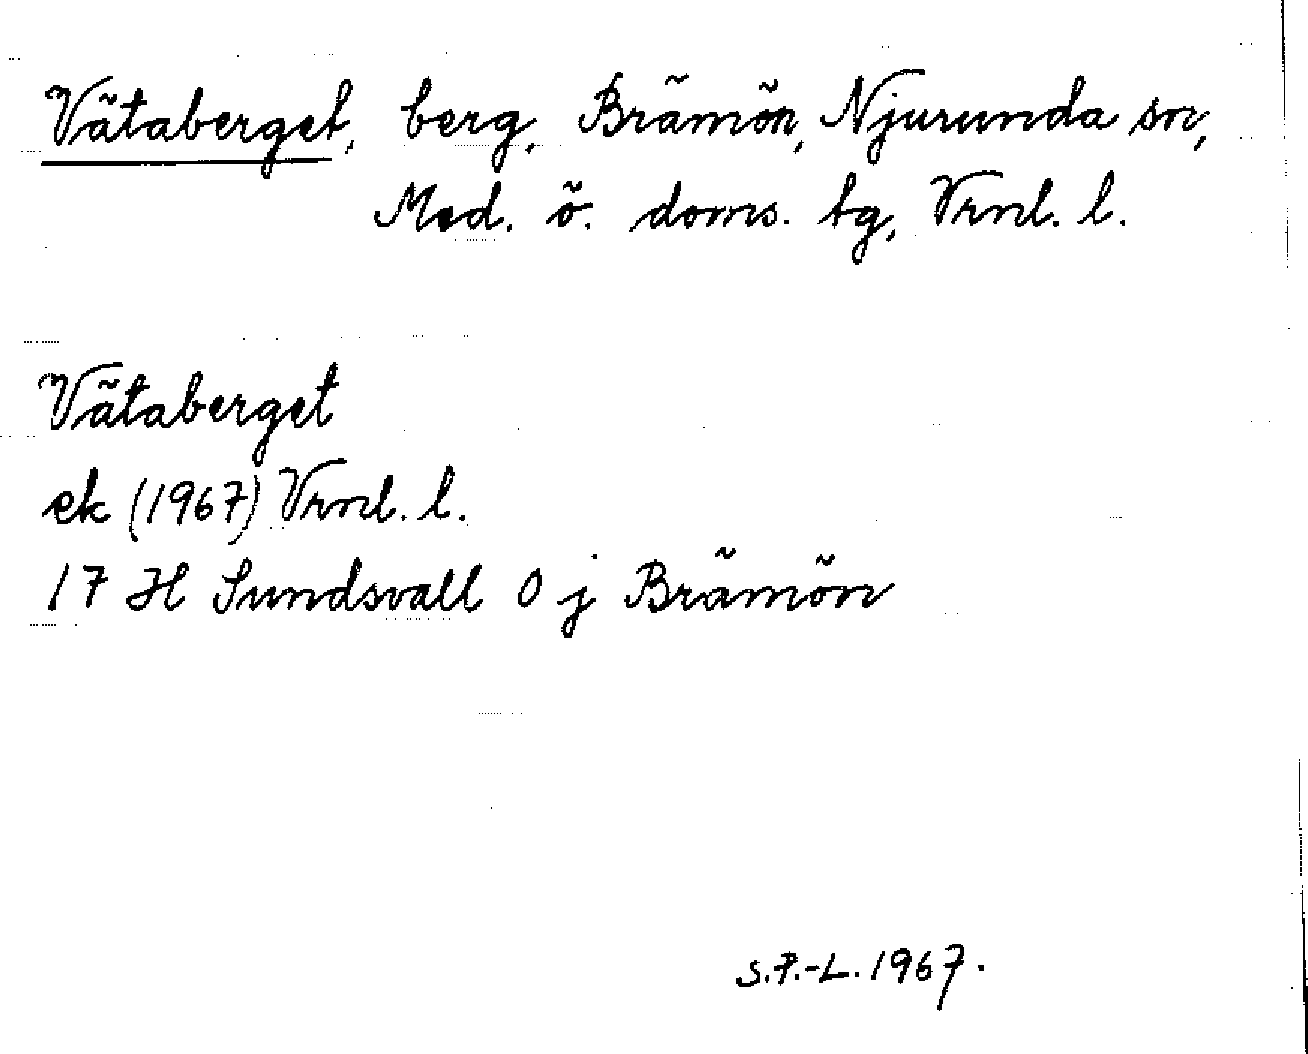 Vätaberget, berg, Brämön, Njurunda sn,
Med. ö. doms. tg, Vrnl. l.
Vätaberget
ek (1967) Vrnl. l.
17 H Sundsvall 0 j Brämön
S.P.-L. 1967.